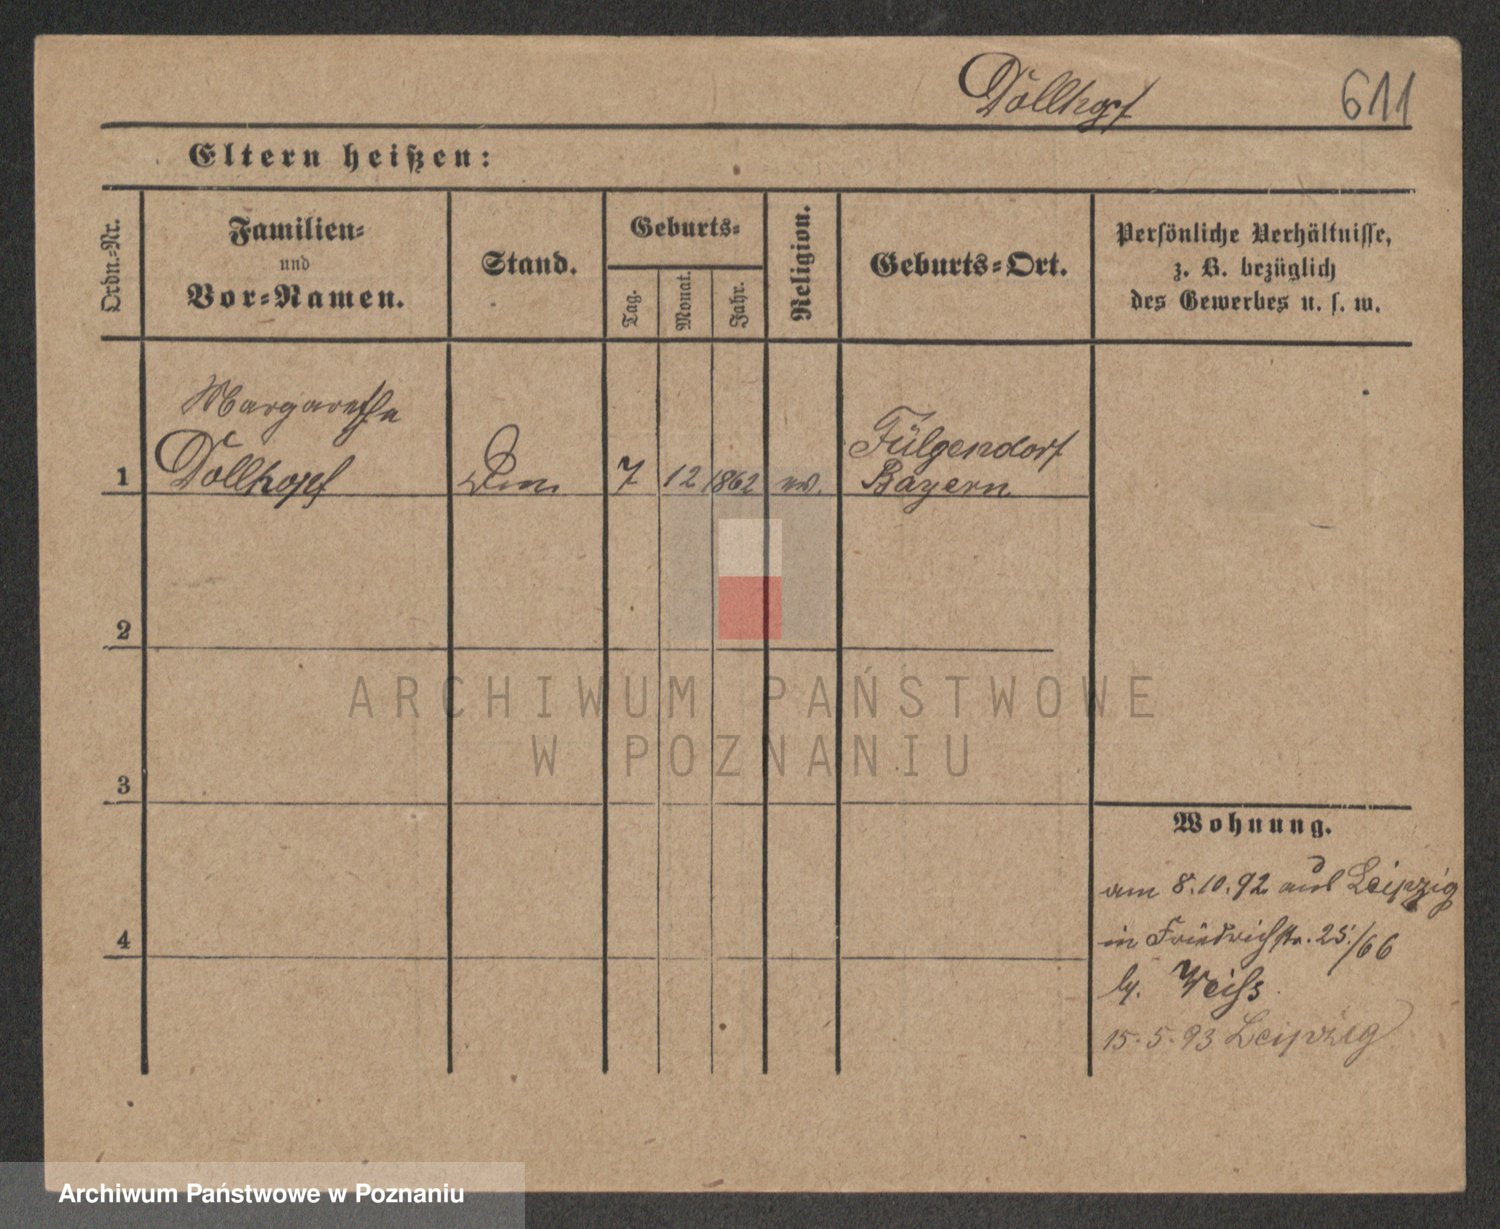 Dollhopf 611
Eltern heißen:
Ordn.-Nr.
Familien-
und
Vor-Namen.
Stand.
Geburts-
Tag.
Monat.
Jahr.
Religion.
Geburts-Ort.
Persönliche Verhältnisse,
z. B. bezüglich
des Gewerbes u. s. w.
Margarethe
1 Dollhopf 7 12 1862 ev.
Fülgendorf
Bayern
2
ARCHIWUM PAŃSTWOWE
W POZNANIU
3
4
Wohnung.
am 8.10.92 aus Leipzig
in Friedrichstr. 25/66
b. Weiss
15.5.93 Leipzig
Archiwum Państwowe w Poznaniu